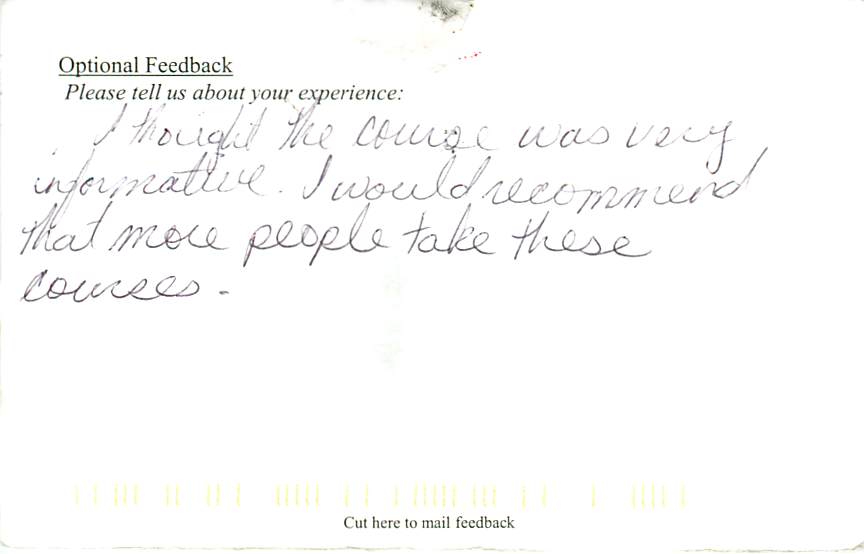 Optional Feedback
Please tell us about your experience:
I thought the course was very
informative. I would recommend
that more people take these
courses.
Cut here to mail feedback